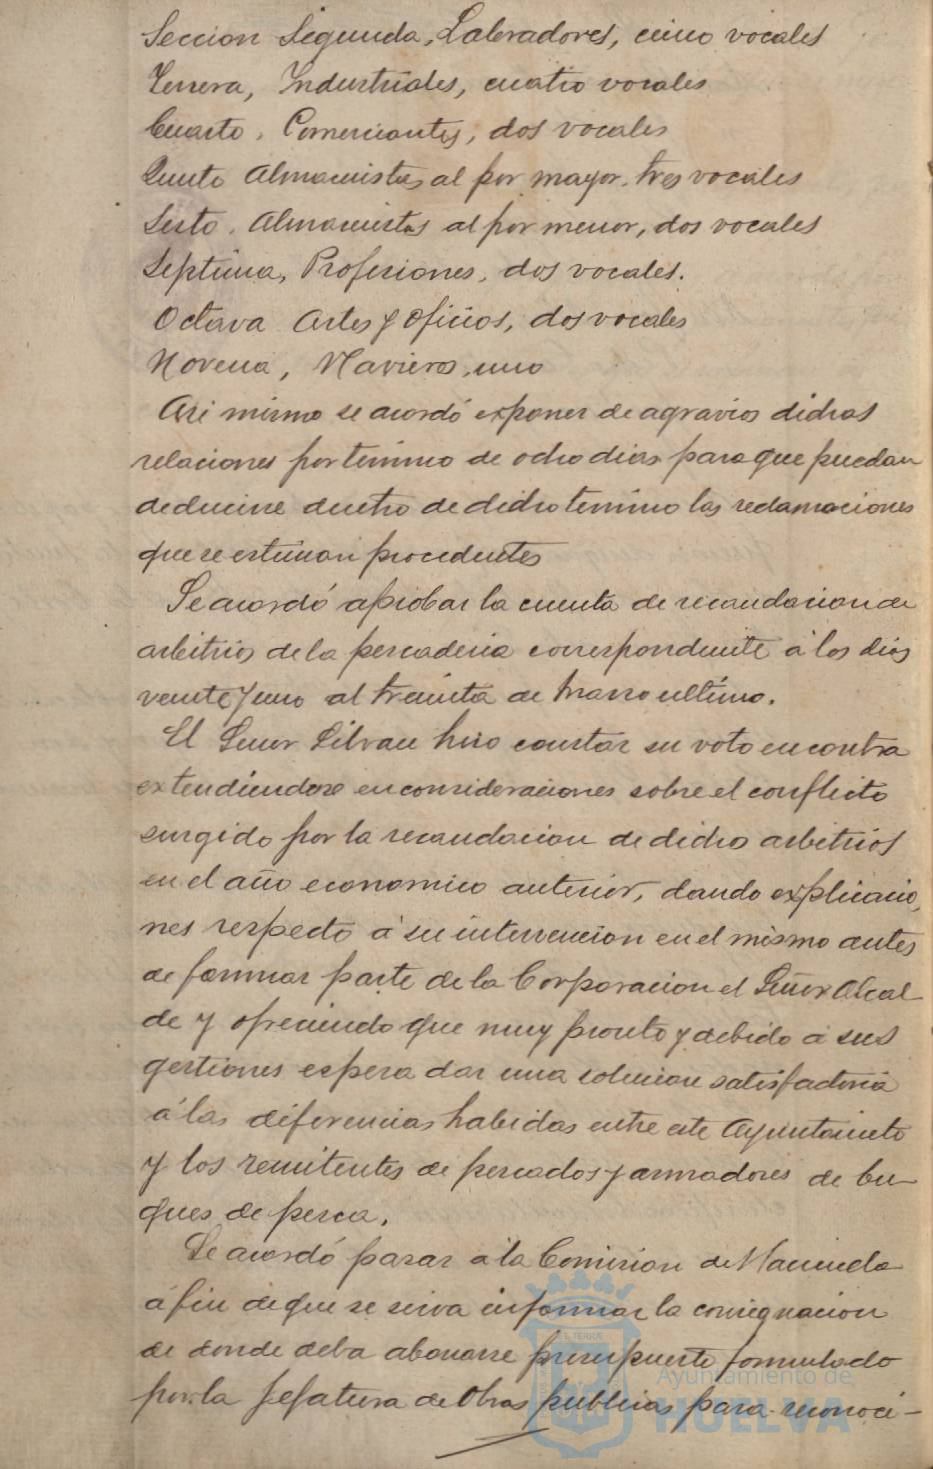 Seccion Segunda, Labradores, cinco vocales
Tercera, Industriales, cuatro vocales
Cuarto, Comerciantes, dos vocales
Quinto Almacenistas al por mayor, tres vocales
Sesto. Almacenistas al por menor, dos vocales
Septima, Profesiones, dos vocales.
Octava Artes y Oficios, dos vocales
Novena, Navieros, uno
Asi mismo se acordó exponer de agravios dichas
relaciones por termino de ocho dias para que puedan
deducirse dentro de dicho termino las reclamaciones
que se estiman procedentes
Se acordó aprobar la cuenta de recaudacion de
arbitrios de la pescaderia correspondiente á los dias
veinte y uno al treinta de Marzo ultimo.
El Señor Silvan hizo constar su voto en contra
extendiendose en consideraciones sobre el conflicto
surgido por la recaudacion de dicho arbitrios
en el año economico anterior, dando explicacio,
nes respecto á su intervencion en el mismo antes
de formar parte de la Corporacion el Señor Alcal
de y ofreciendo que muy pronto y debido á sus
gestiones espera dar una solucion satisfactoria
á las diferencias habidas entre este Ayuntamiento
y los remitentes de pescados y armadores de bu-
ques de pesca.
Se acordó pasar á la Comision de Hacienda
á fin de que se sirva informar la consignacion
de donde deba abonarse presupuesto formulado
por la Jefatura de Obras publicas para reconoci-
Ayuntamiento de
HUELVA